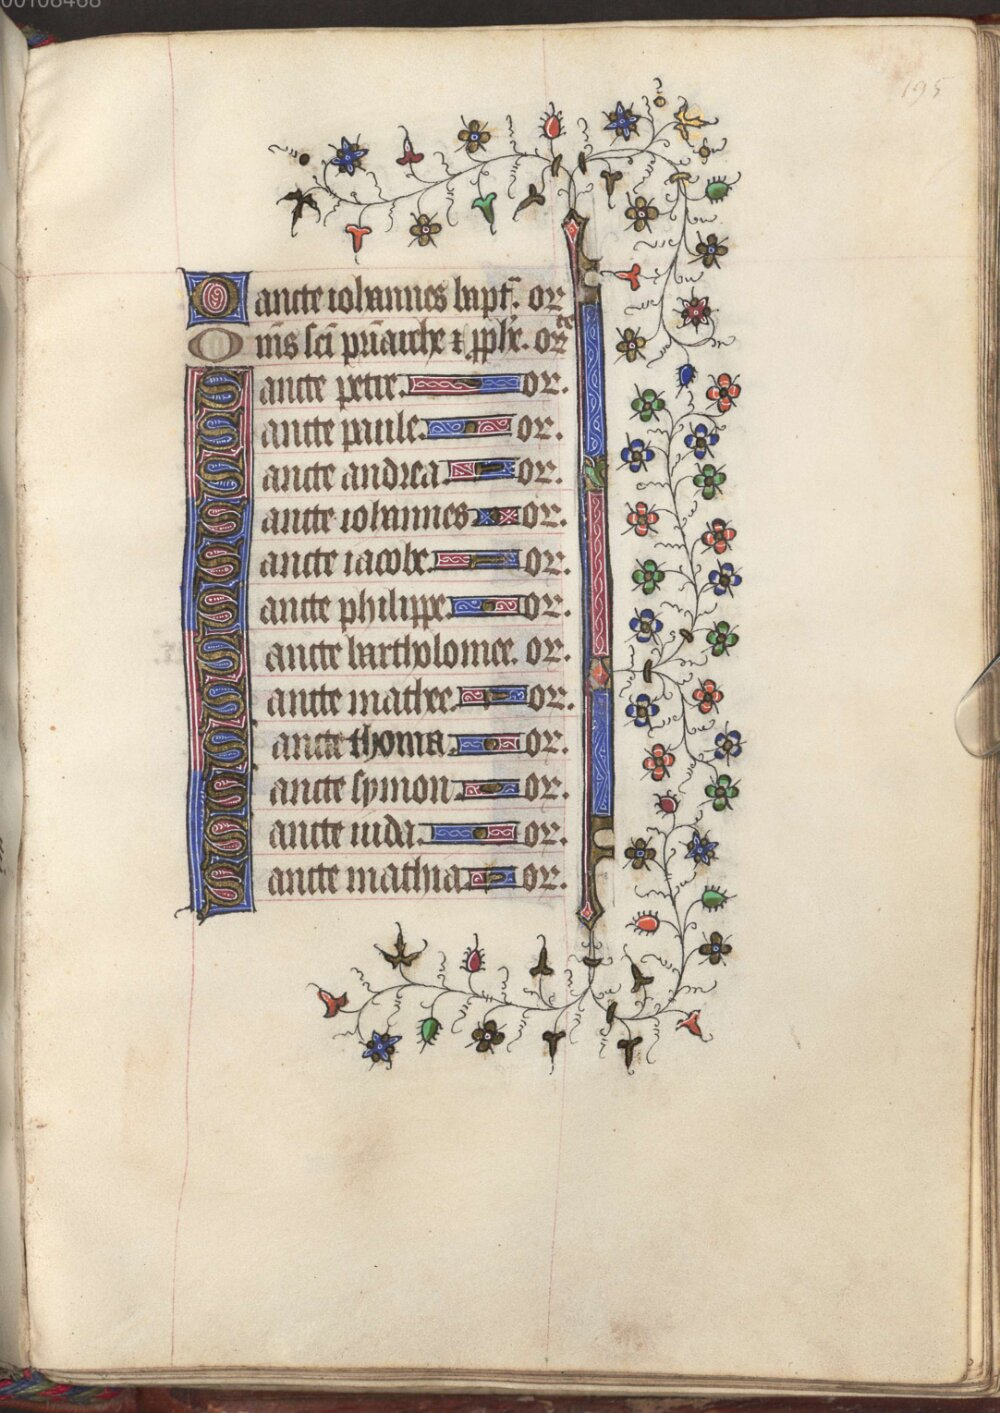 00108468
195
Oancte iohannes bapt̄. or
Om̄s sc̄i pr̄iarche ⁊ ꝓph̄e. orte
Sancte petre. or.
Sancte paule. or.
Sancte andrea. or.
Sancte iohannes or.
Sancte iacobe. or.
Sancte philippe. or.
Sancte bartholomee. or.
Sancte mathee. or.
Sancte thoma. or.
Sancte symon. or.
Sancte iuda. or.
Sancte mathia. or.